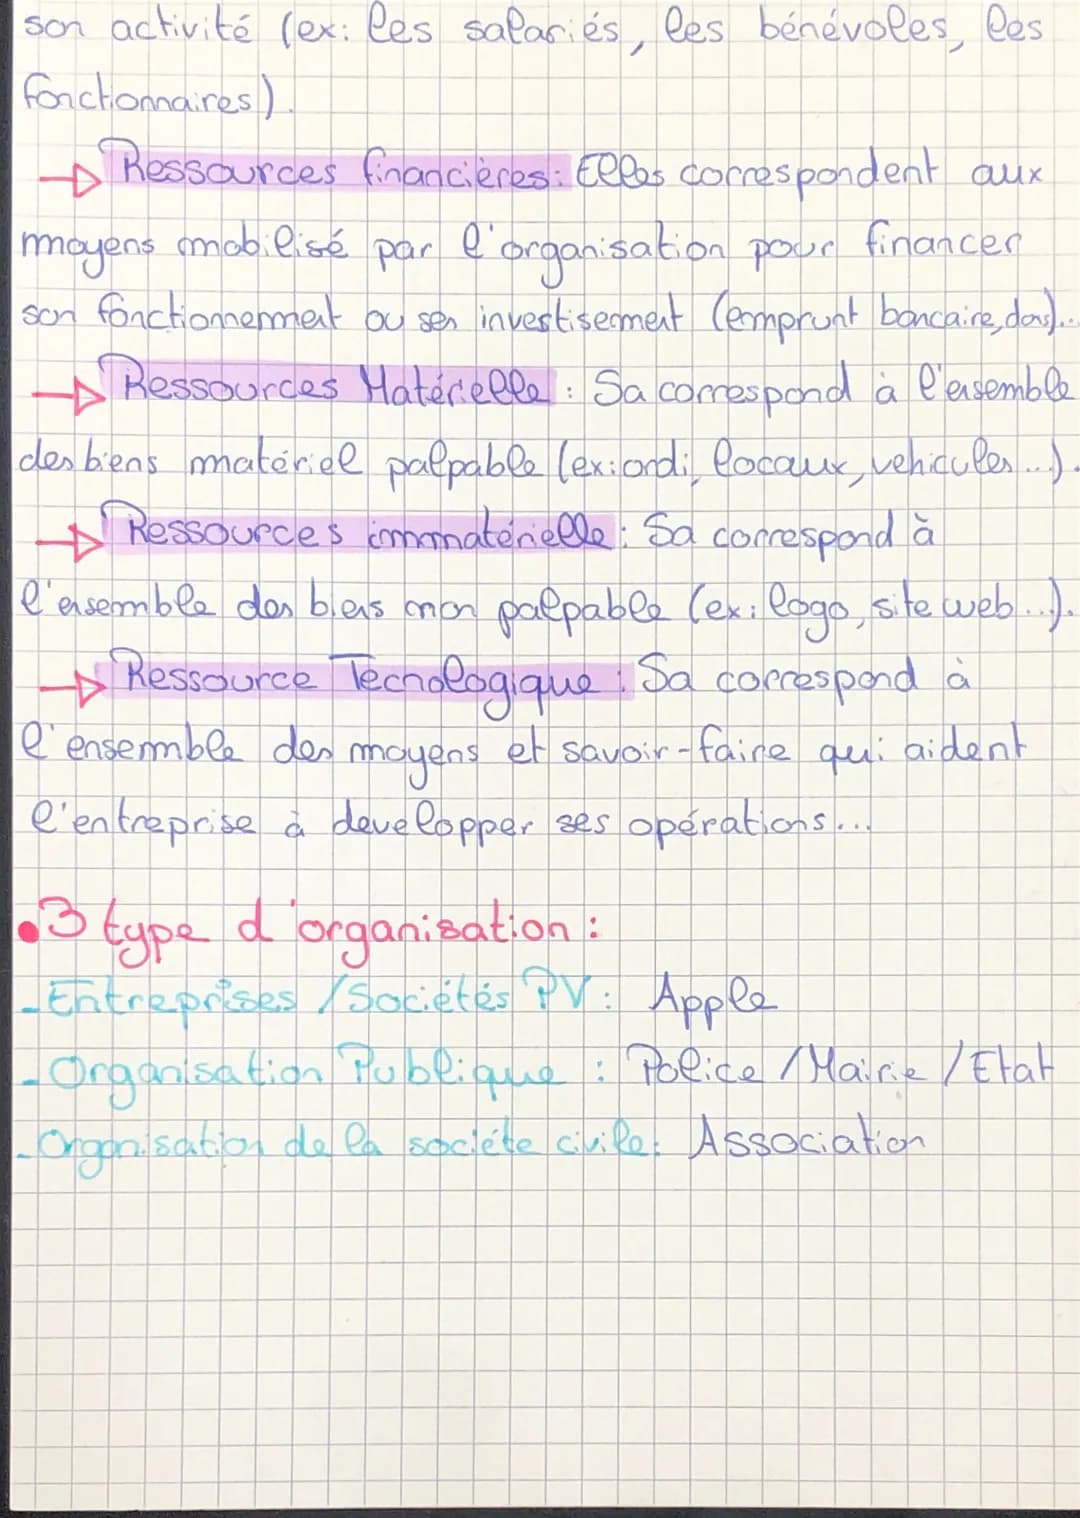 son activité (ex: les salariés, les bénévoles, les
fonctionnaires).
Ressources financières: Elles correspondent aux
moyens mobilisé par l'organisation pour financer
son fonctionnement ou ses investisement (emprunt bancaire, dons)..
Ressources Matérielle : Sa correspond à l'ensemble
des biens matériel palpable (ex: ordi, locaux, vehicules...).
Ressources immatérielle : Sa correspond à
l'ensemble des biens non palpable (ex: logo, site web...).
Ressource Tecnologique : Sa correspond à
l'ensemble des moyens et savoir-faire qui aident
l'entreprise à developper ses opérations...
•3 type d'organisation :
-Entreprises / Sociétés PV : Apple
-Organisation Publique : Police / Mairie / Etat
-Organisation de la sociéte civile: Association